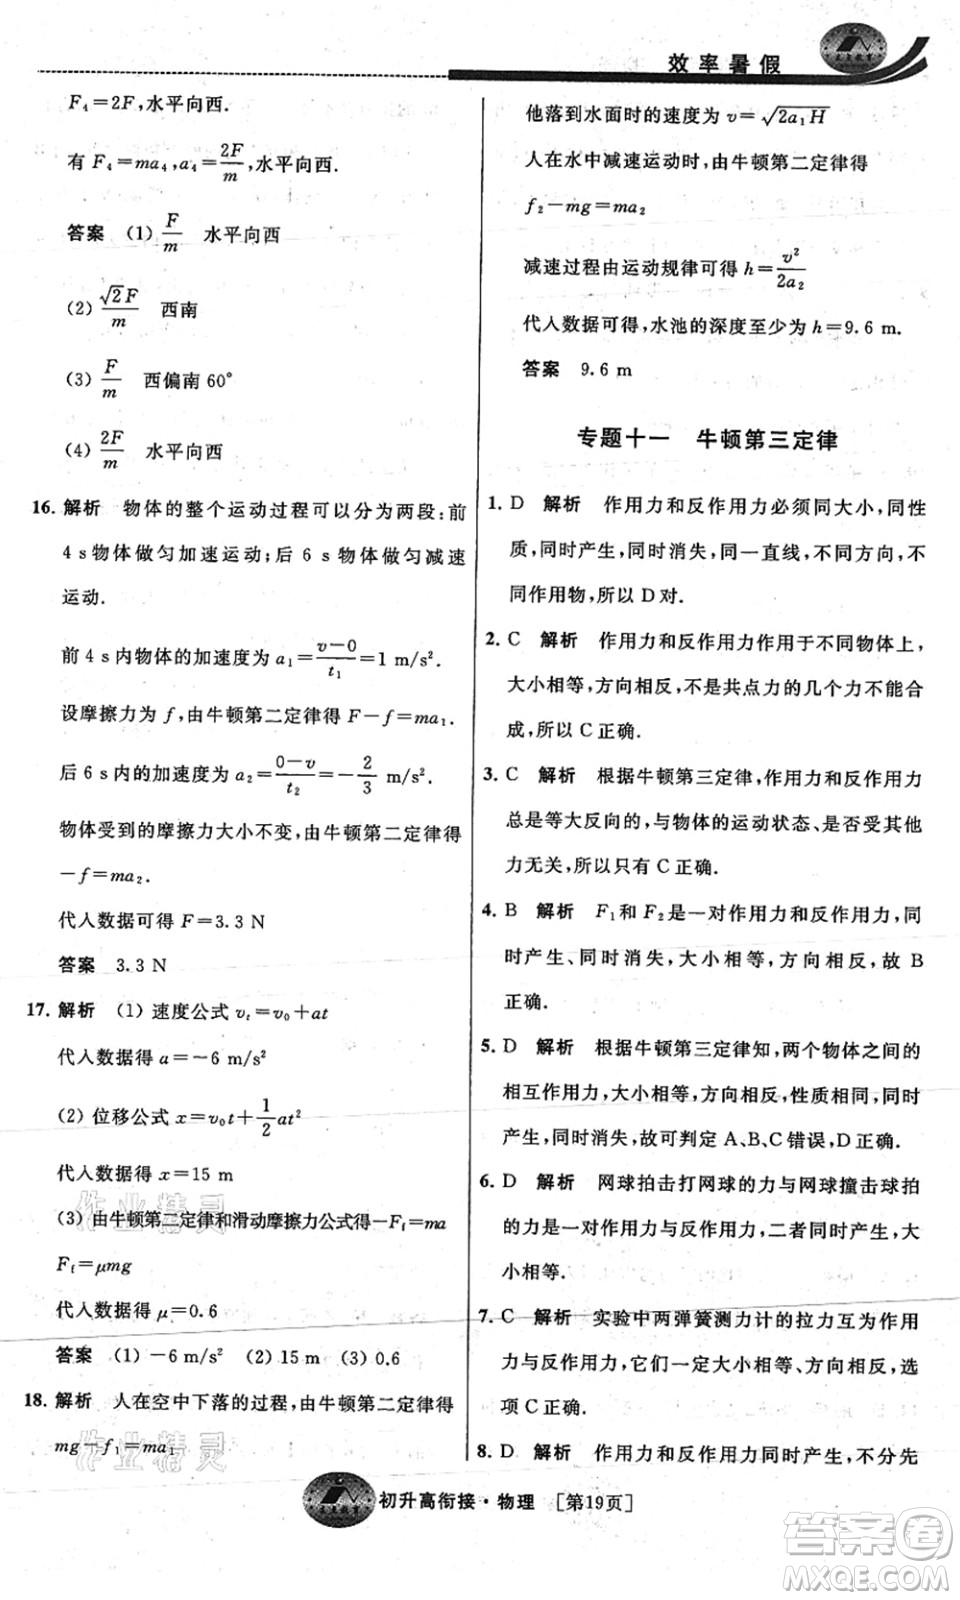 效率暑假
F₄=2F,水平向西.
有 F₄=ma₄,a₄=2F/m,水平向西.
答案 (1) F/m 水平向西
(2) √2F/m 西南
(3) F/m 西偏南 60°
(4) 2F/m 水平向西
16. 解析 物体的整个运动过程可以分为两段:前
4 s物体做匀加速运动;后 6 s 物体做匀减速
运动.
前 4 s内物体的加速度为 a₁=(v-0)/t₁=1 m/s².
设摩擦力为 f,由牛顿第二定律得 F-f=ma₁.
后 6 s内的加速度为 a₂=(0-v)/t₂=-2/3 m/s².
物体受到的摩擦力大小不变,由牛顿第二定律得
-f=ma₂.
代人数据可得 F=3.3 N
答案 3.3 N
17. 解析 (1) 速度公式 vₜ=v₀+at
代人数据得 a=-6 m/s²
(2) 位移公式 x=v₀t+1/2at²
代人数据得 x=15 m
(3) 由牛顿第二定律和滑动摩擦力公式得-Ff=ma
Ff=μmg
代人数据得 μ=0.6
答案 (1) -6 m/s² (2) 15 m (3) 0.6
18. 解析 人在空中下落的过程,由牛顿第二定律得
mg-f₁=ma₁
他落到水面时的速度为 v=√2a₁H
人在水中减速运动时,由牛顿第二定律得
f₂-mg=ma₂
减速过程由运动规律可得 h=v²/2a₂
代人数据可得,水池的深度至少为 h=9.6 m.
答案 9.6 m
专题十一 牛顿第三定律
1. D 解析 作用力和反作用力必须同大小,同性
质,同时产生,同时消失,同一直线,不同方向,不
同作用物,所以 D对.
2. C 解析 作用力和反作用力作用于不同物体上,
大小相等,方向相反,不是共点力的几个力不能合
成,所以 C正确.
3. C 解析 根据牛顿第三定律,作用力和反作用力
总是等大反向的,与物体的运动状态、是否受其他
力无关,所以只有 C正确.
4. B 解析 F₁和 F₂是一对作用力和反作用力,同
时产生、同时消失,大小相等,方向相反,故 B
正确.
5. D 解析 根据牛顿第三定律知,两个物体之间的
相互作用力,大小相等,方向相反,性质相同,同时
产生,同时消失,故可判定 A、B、C错误,D正确.
6. D 解析 网球拍击打网球的力与网球撞击球拍
的力是一对作用力与反作用力,二者同时产生,大
小相等.
7. C 解析 实验中两弹簧测力计的拉力互为作用
力与反作用力,它们一定大小相等、方向相反,选
项 C正确.
8. D 解析 作用力和反作用力同时产生,不分先
初升高衔接·物理 [第19页]
作业精灵
作业精灵
答案圈
MXQE.COM